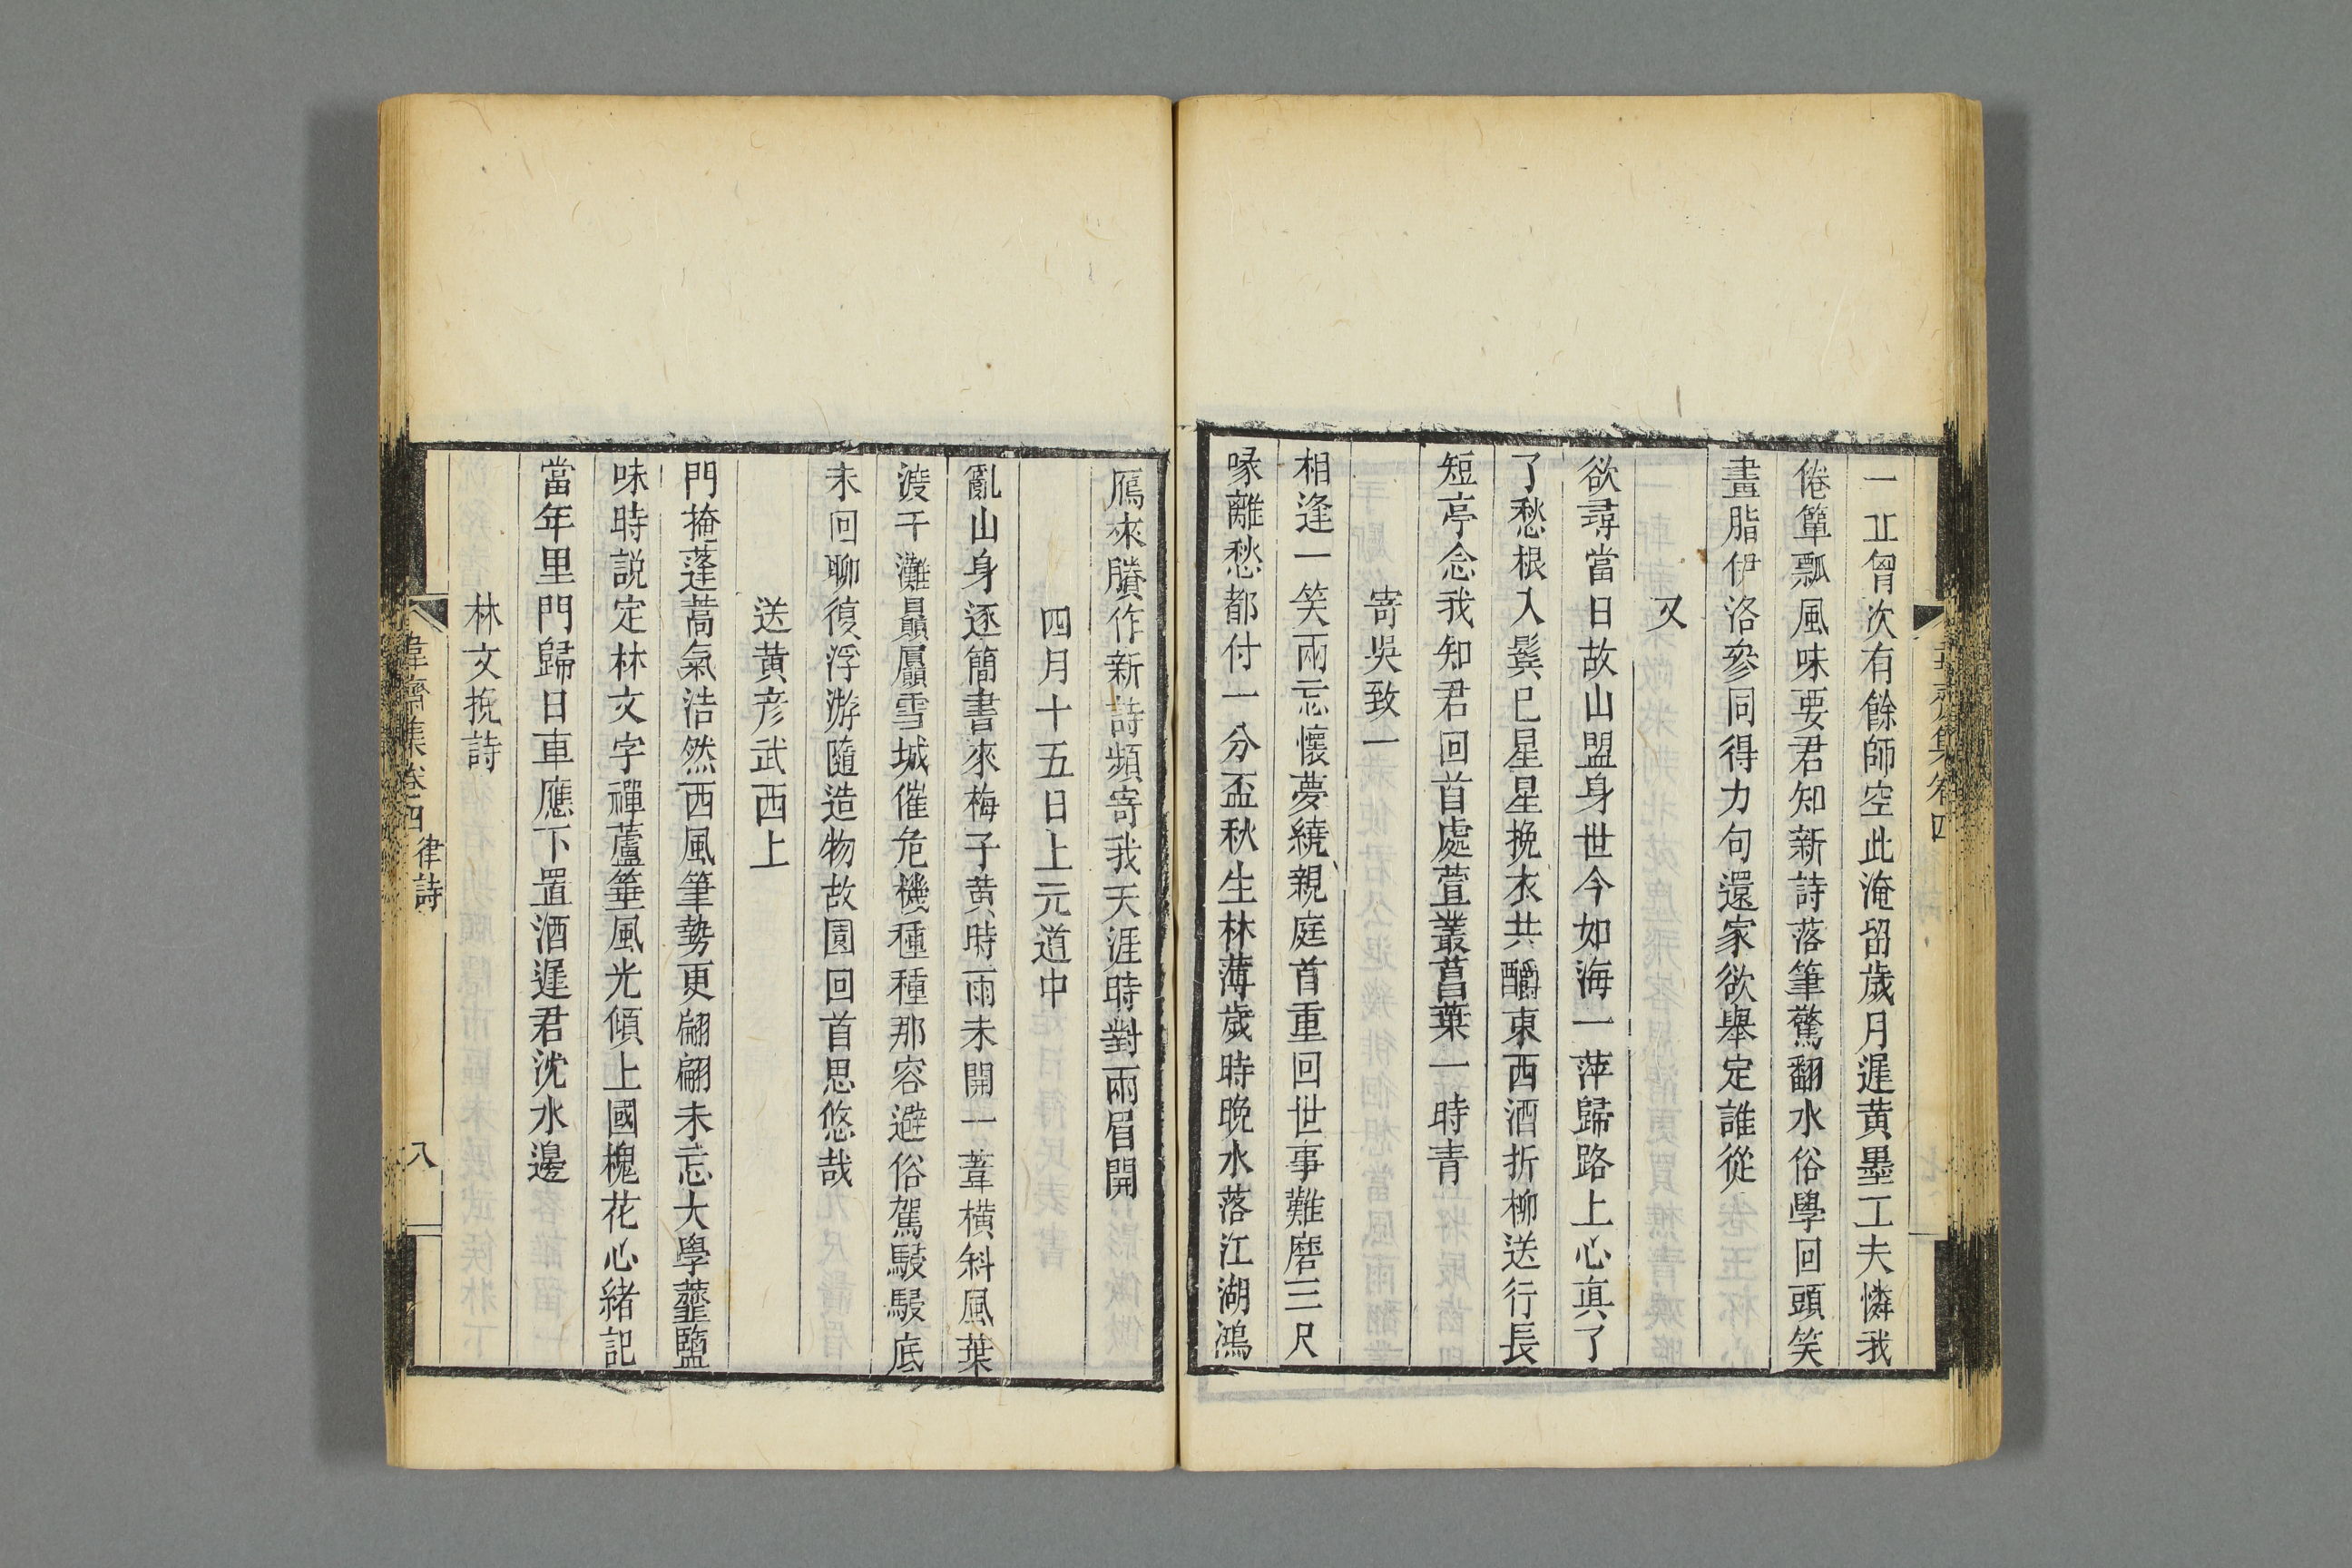 一丘曾次有餘師空此淹留歲月遲黃墨工夫憐我
倦簞瓢風味要君知新詩落筆驚翻水俗學回頭笑
畫脂伊洛參同得力句還家欲舉定誰從
又
欲尋當日故山盟身世今如海一萍歸路上心真了
了愁根入鬢已星星挽衣共釂東西酒折柳送行長
短亭念我知君回首處萱叢菖葉一時青
寄吳致一
相逢一笑兩忘懷夢繞親庭首重回世事難磨三尺
喙離愁都付一分盃秋生林薄歲時晚水落江湖鴻
鴈來賸作新詩頻寄我天涯時對兩眉開
四月十五日上元道中
亂山身逐簡書來梅子黃時雨未開一葦橫斜風葉
渡千灘贔屭雪城催危機種種那容避俗駕駸駸底
未回聊復浮游隨造物故園回首思悠哉
送黃彥武西上
門掩蓬蒿氣浩然西風筆勢更翩翩未忘大學虀鹽
味時説定林文字禪蘆葦風光傾上國槐花心緒記
當年里門歸日車應下置酒遲君沈水邊
林文挽詩
韋齋集卷四 律詩 八